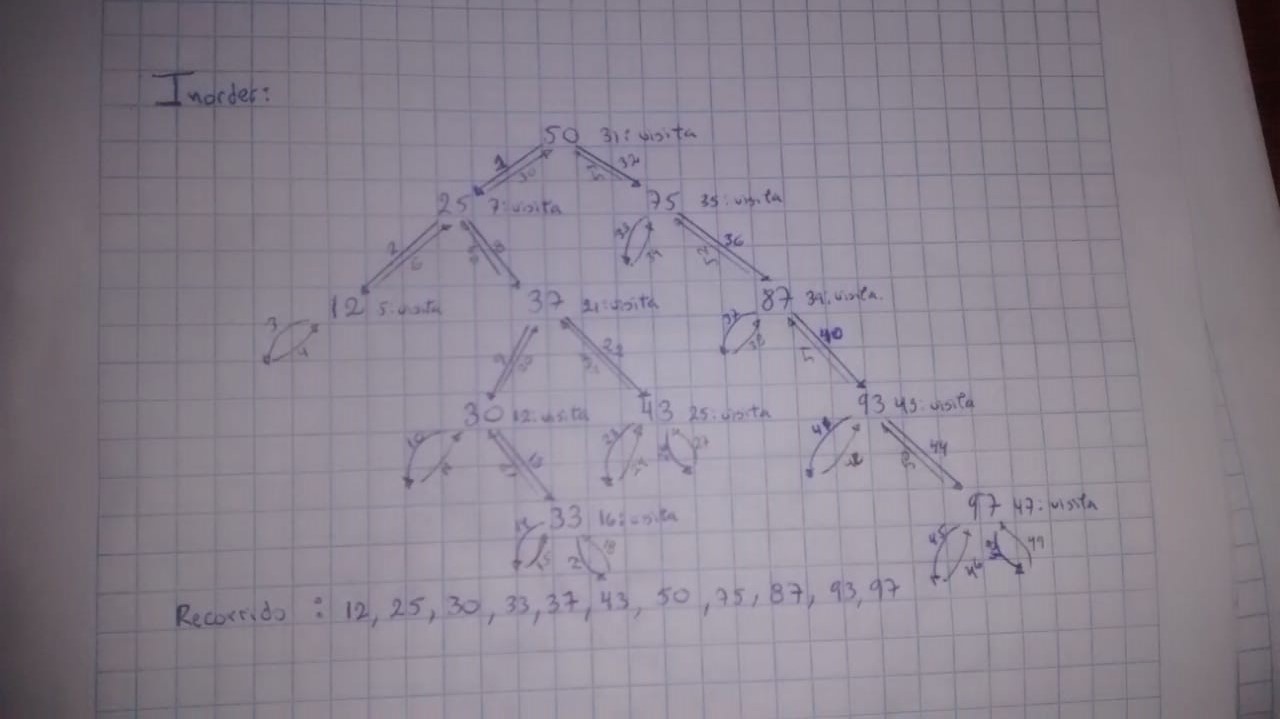 Inorder:
50 31: visita
1 30 32
25 7: visita 75 35: visita
2 6 8 33 36
12 5: visita 37 21: visita 87 39: visita.
3 4 9 22 37 38 40
30 12: visita 43 25: visita 93 43: visita
10 23 27 41 44
33 16: visita 97 47: visita
45 46 49
Recorrido : 12, 25, 30, 33, 37, 43, 50, 75, 87, 93, 97